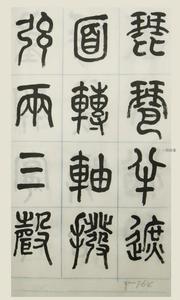 琵琶半遮
面轉軸撥
弦兩三聲